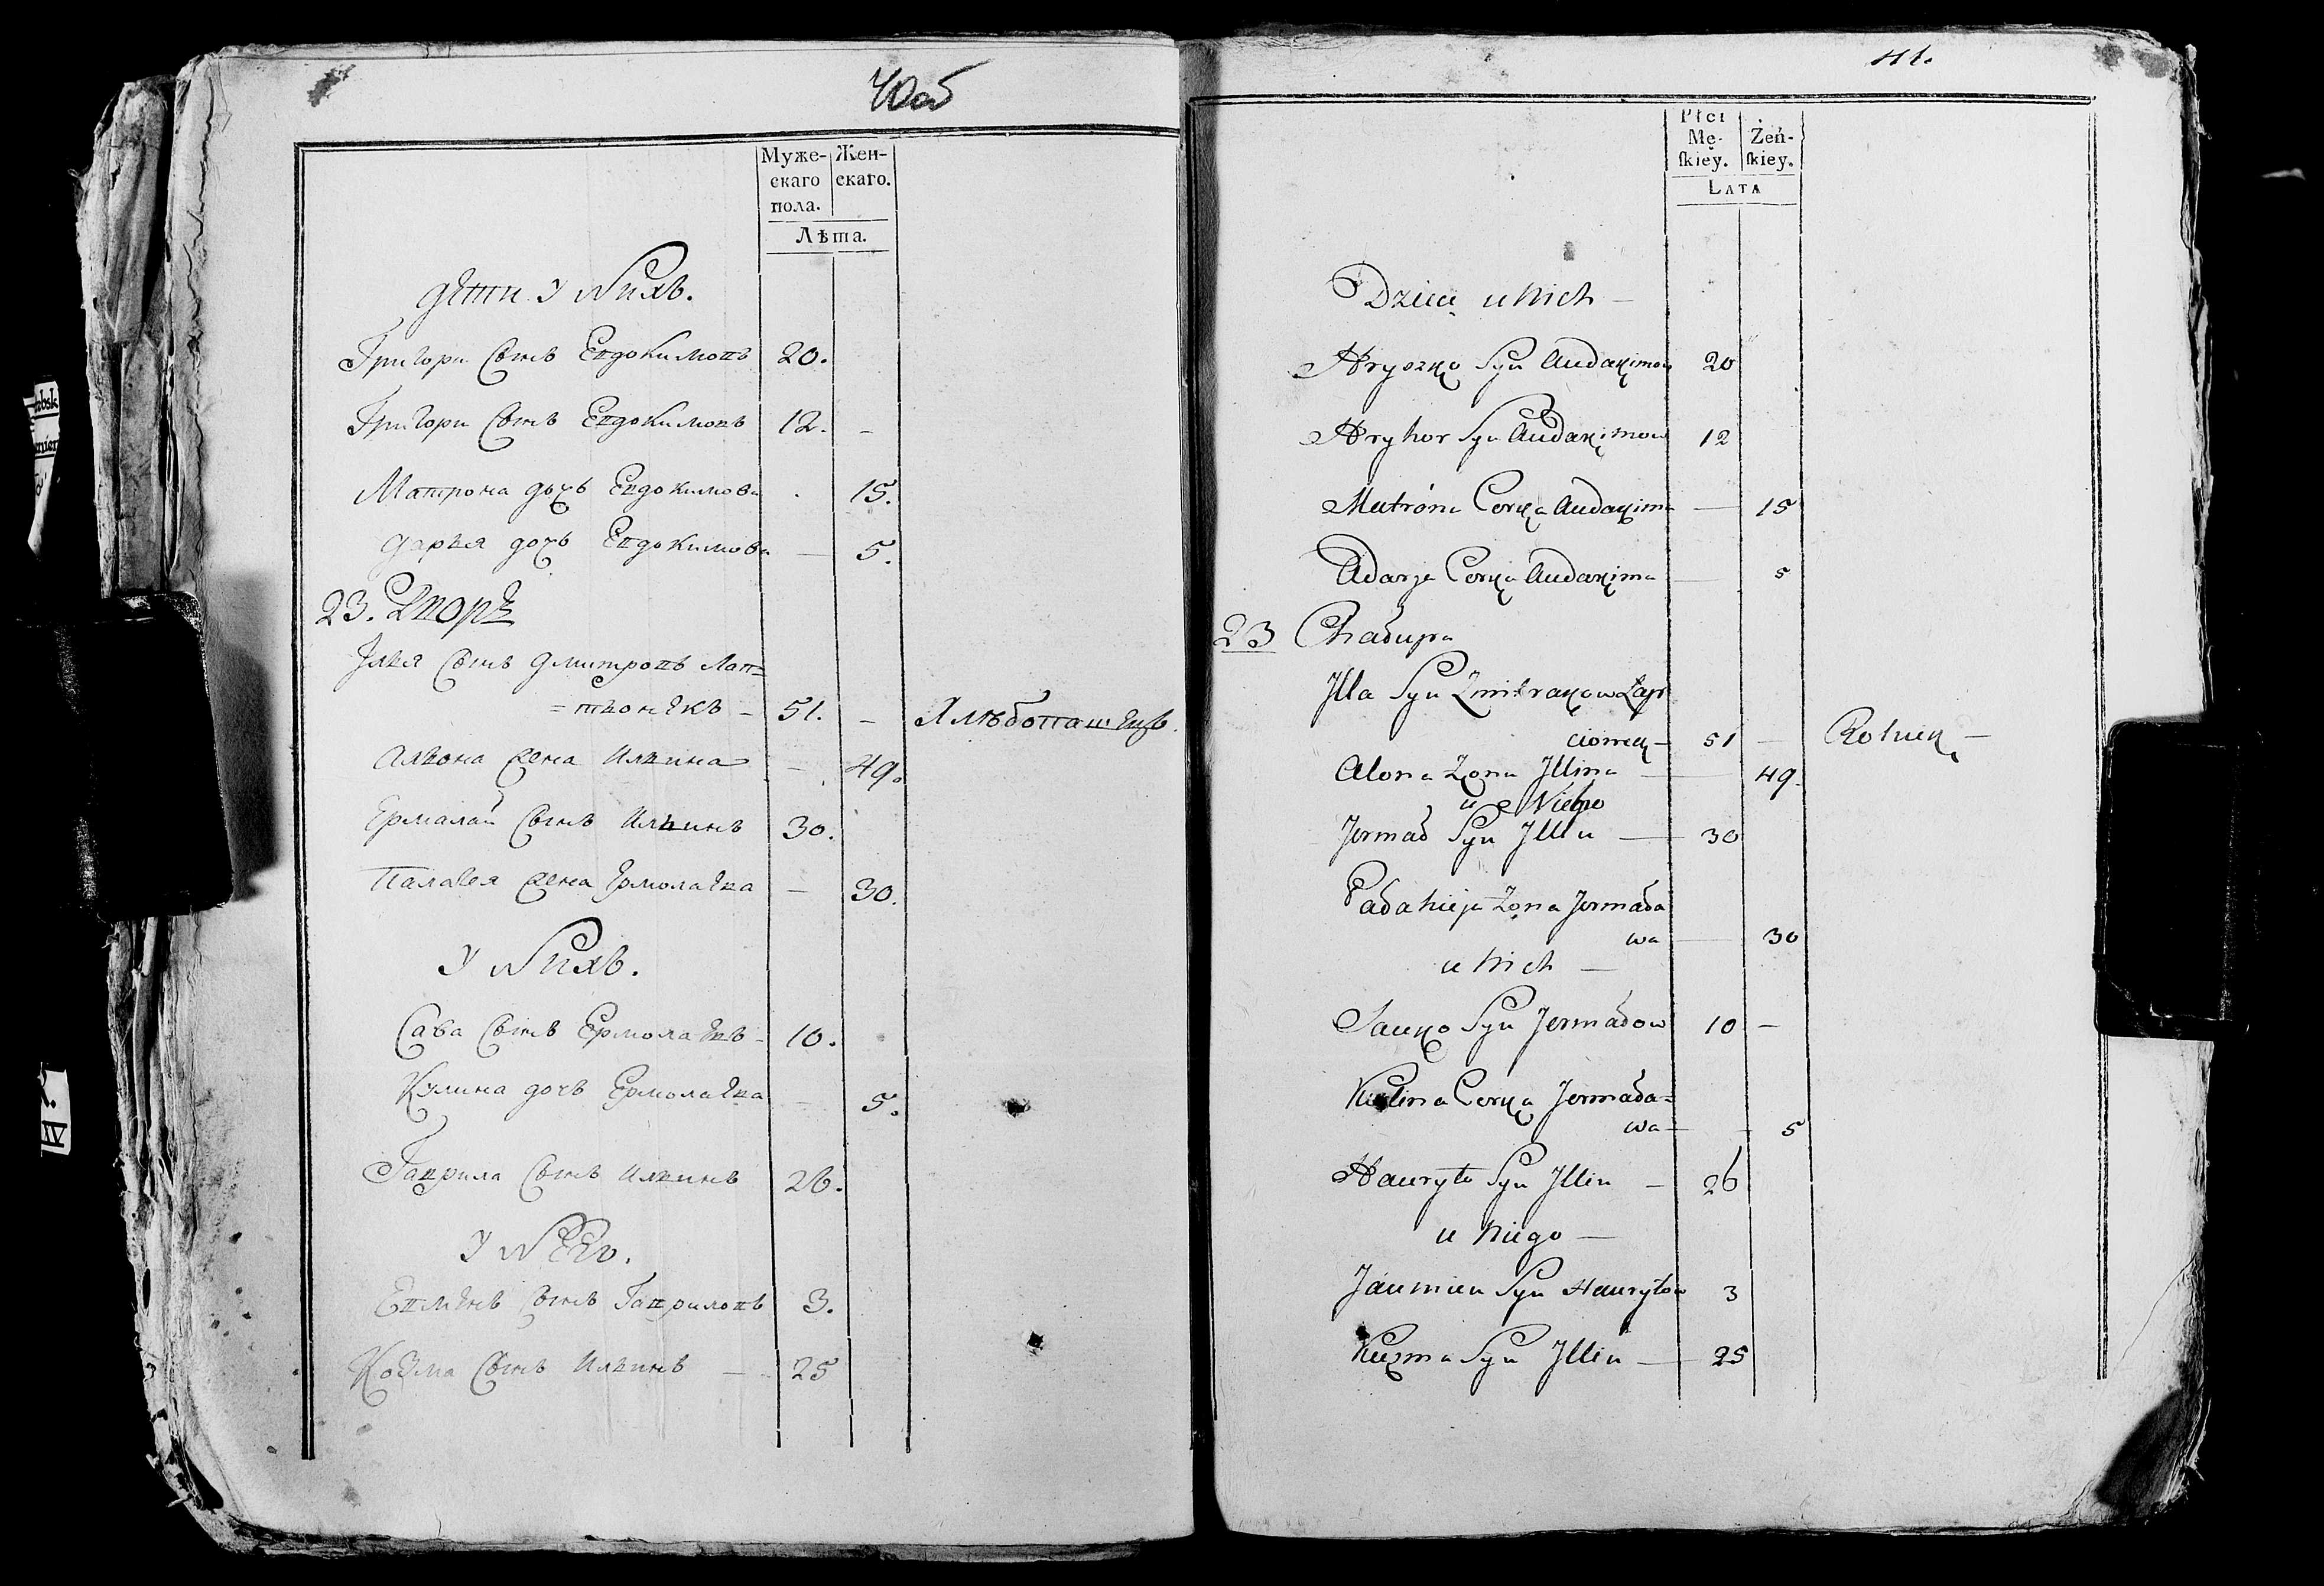 40об
Муже- Жен-
скаго скаго.
пола.
Лѣта.
дѣти у нихъ.
Григори сынъ Евдокимовъ 20.
Григори сынъ Евдокимовъ 12. –
Матрона дочь Евдокимова . 15.
Дарья дочь Евдокимова — 5.
23. Дворѣ
Илья сынъ Дмитровъ Лап=
=тьонекъ – 51. – Хлѣбопашецъ.
Альона жена Ильина – 49.
Ермалай сынъ Ильинъ 30.
Палагея жена Ермолаева – 30.
У нихъ.
Сава сынъ Ермолаевъ – 10.
Кулина дочь Ермолаева – 5.
Гаврила сынъ Ильинъ 26.
У него.
Евменъ сынъ Гавриловъ 3.
Козма сынъ Ильинъ — 25
41.
Płci
Mę- Żeń-
ſkiey. ſkiey.
LATA
Dzieci u nich —
Hryszko Syn Audakimow 20
Hryhor Syn Audakimow 12
Matróna Corka Audakima — 15
Adarja Corka Audakima — 5
23 Chałupa
Jlla Syn Zmitrakow Łap
cionek – 51 — Rolnik —
Alona Zona Jllina — 49.
u Niego
Jermał Syn Jllin — 30
Pałahieja Zona Jermała
wa — 30
u nich —
Sauko Syn Jermałow 10 –
Kulina Corka Jermała=
wa – 5
Hauryło Syn Jllin – 26
u niego —
Jaumien Syn Hauryłow 3
Kuzma Syn Jllin — 25